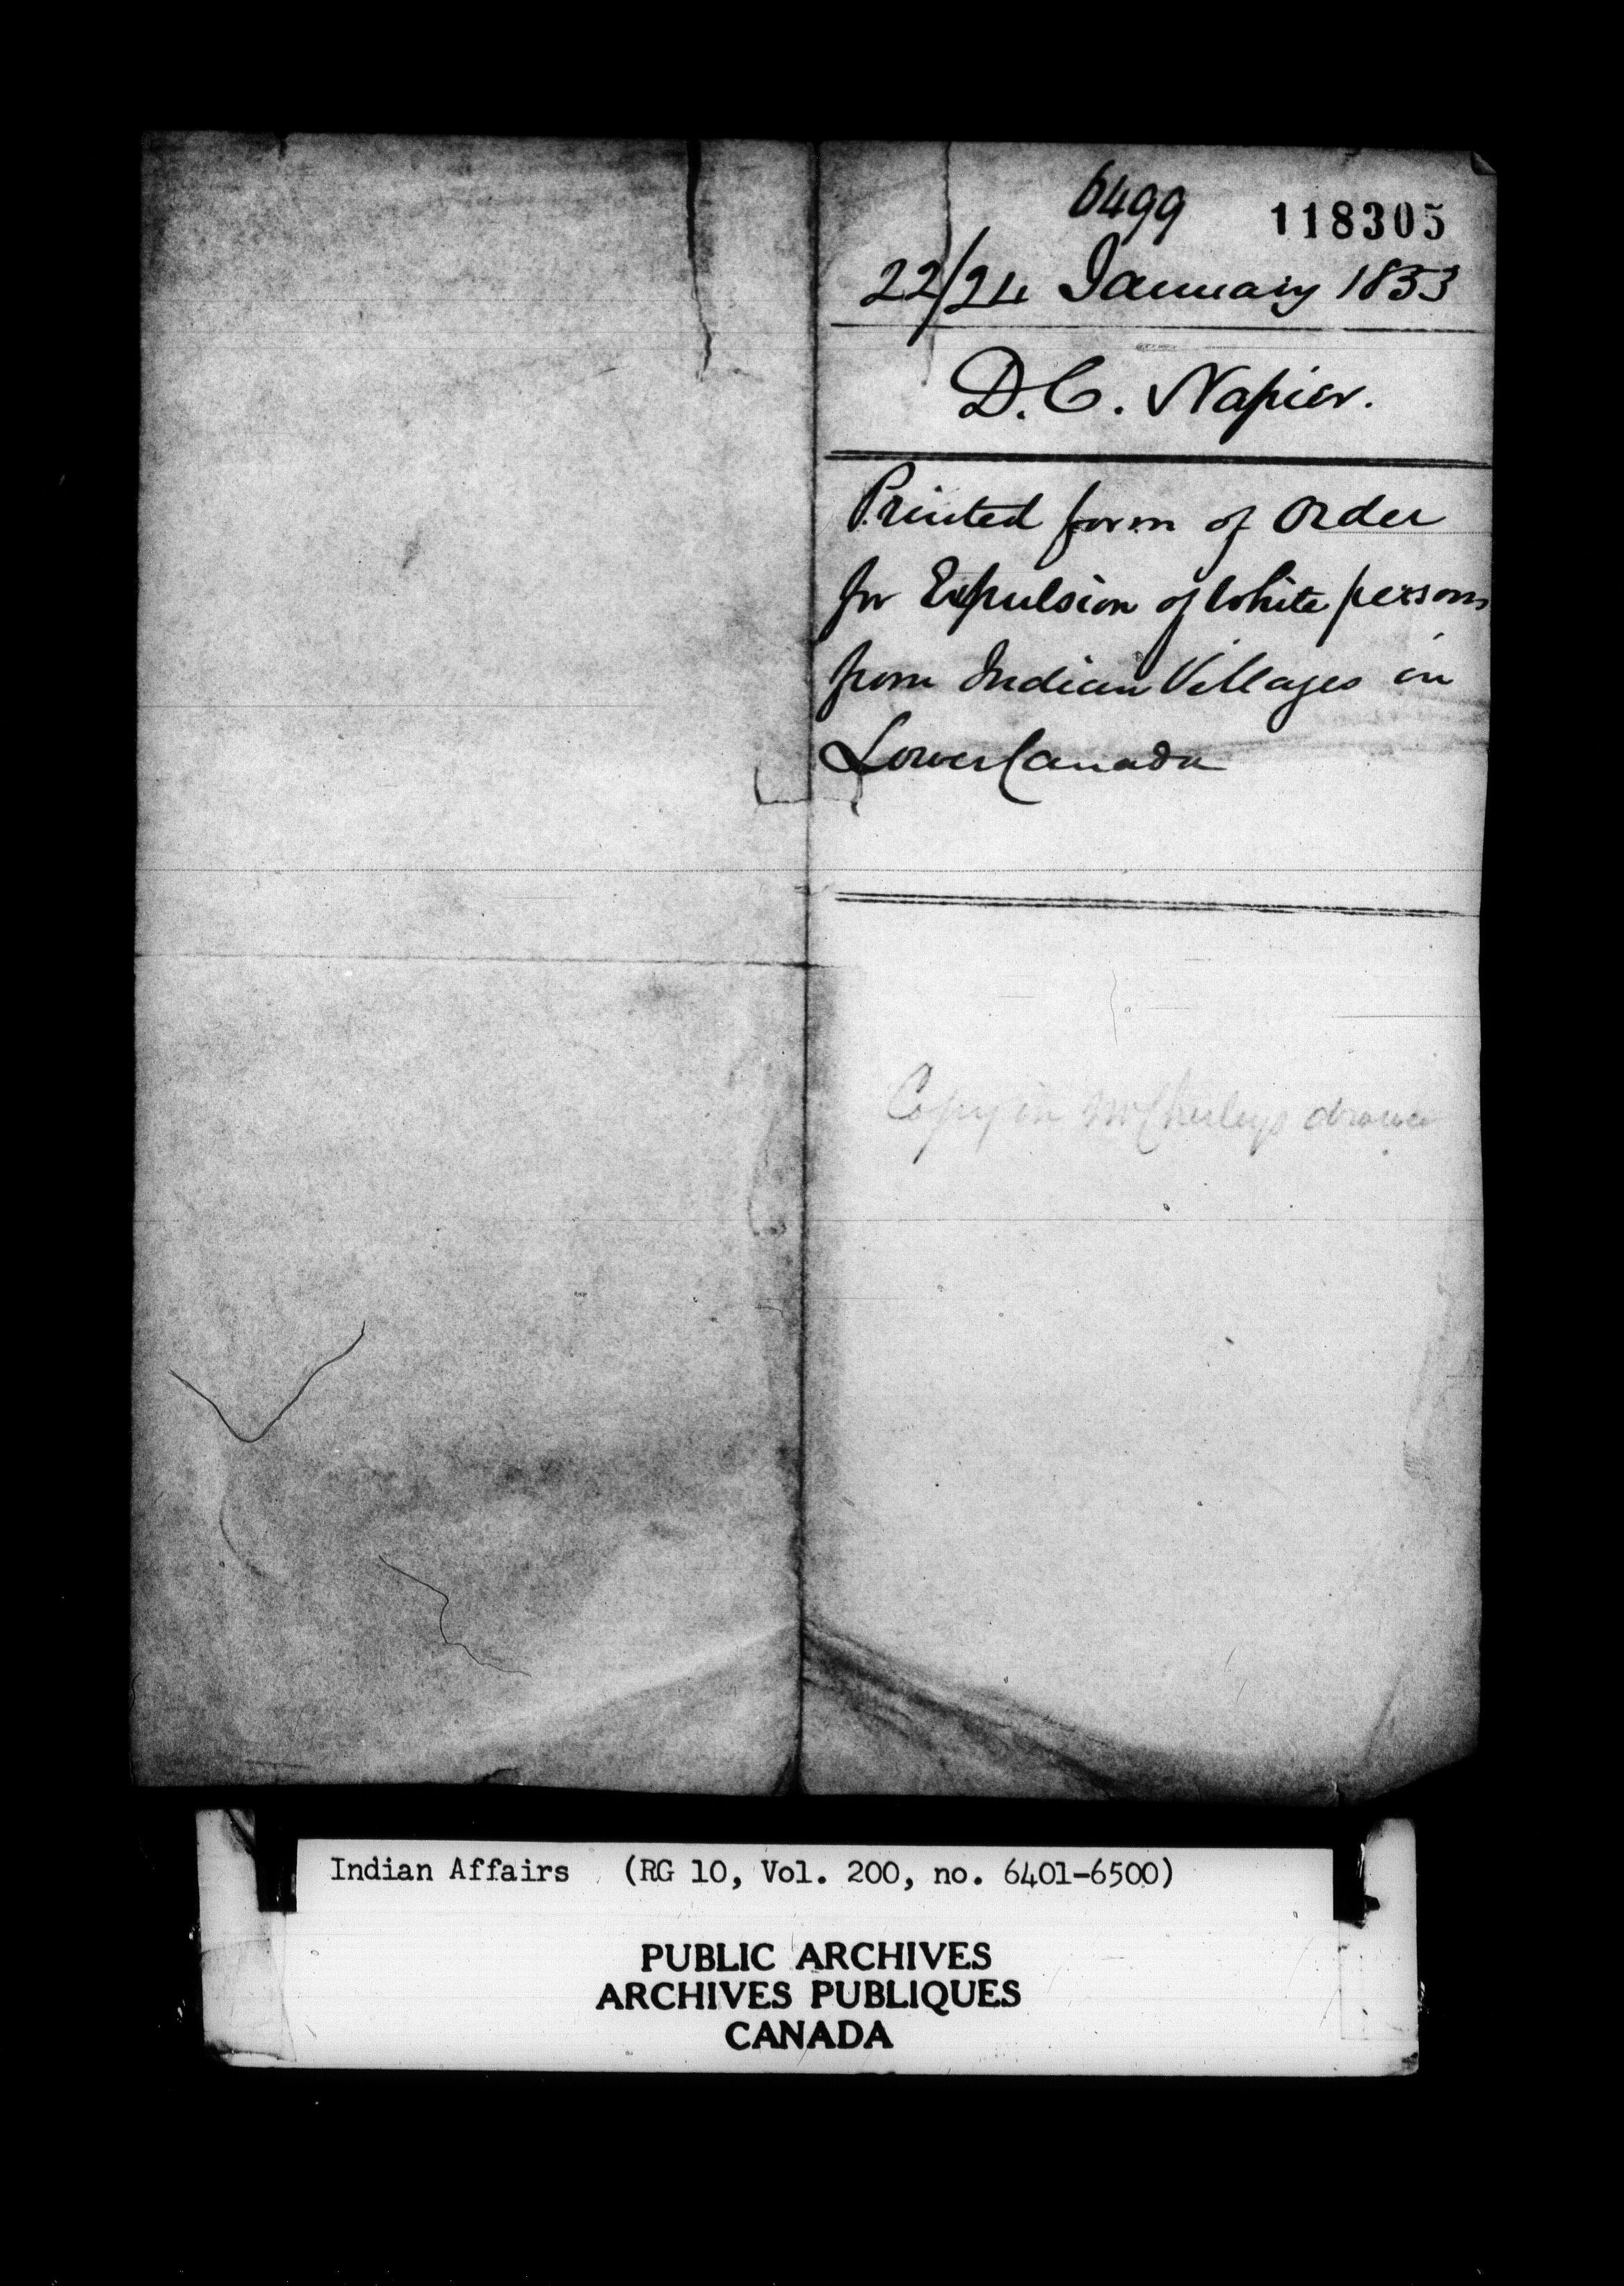 6499
118305
22/24 January 1853
D.C. Napier.
Printed form of Order
for Expulsion of White persons
from Indian Villages in
Lower Canada
Copy in
Indian Affairs (RG 10, Vol. 200, no. 6401-6500)
PUBLIC ARCHIVES
ARCHIVES PUBLIQUES
CANADA